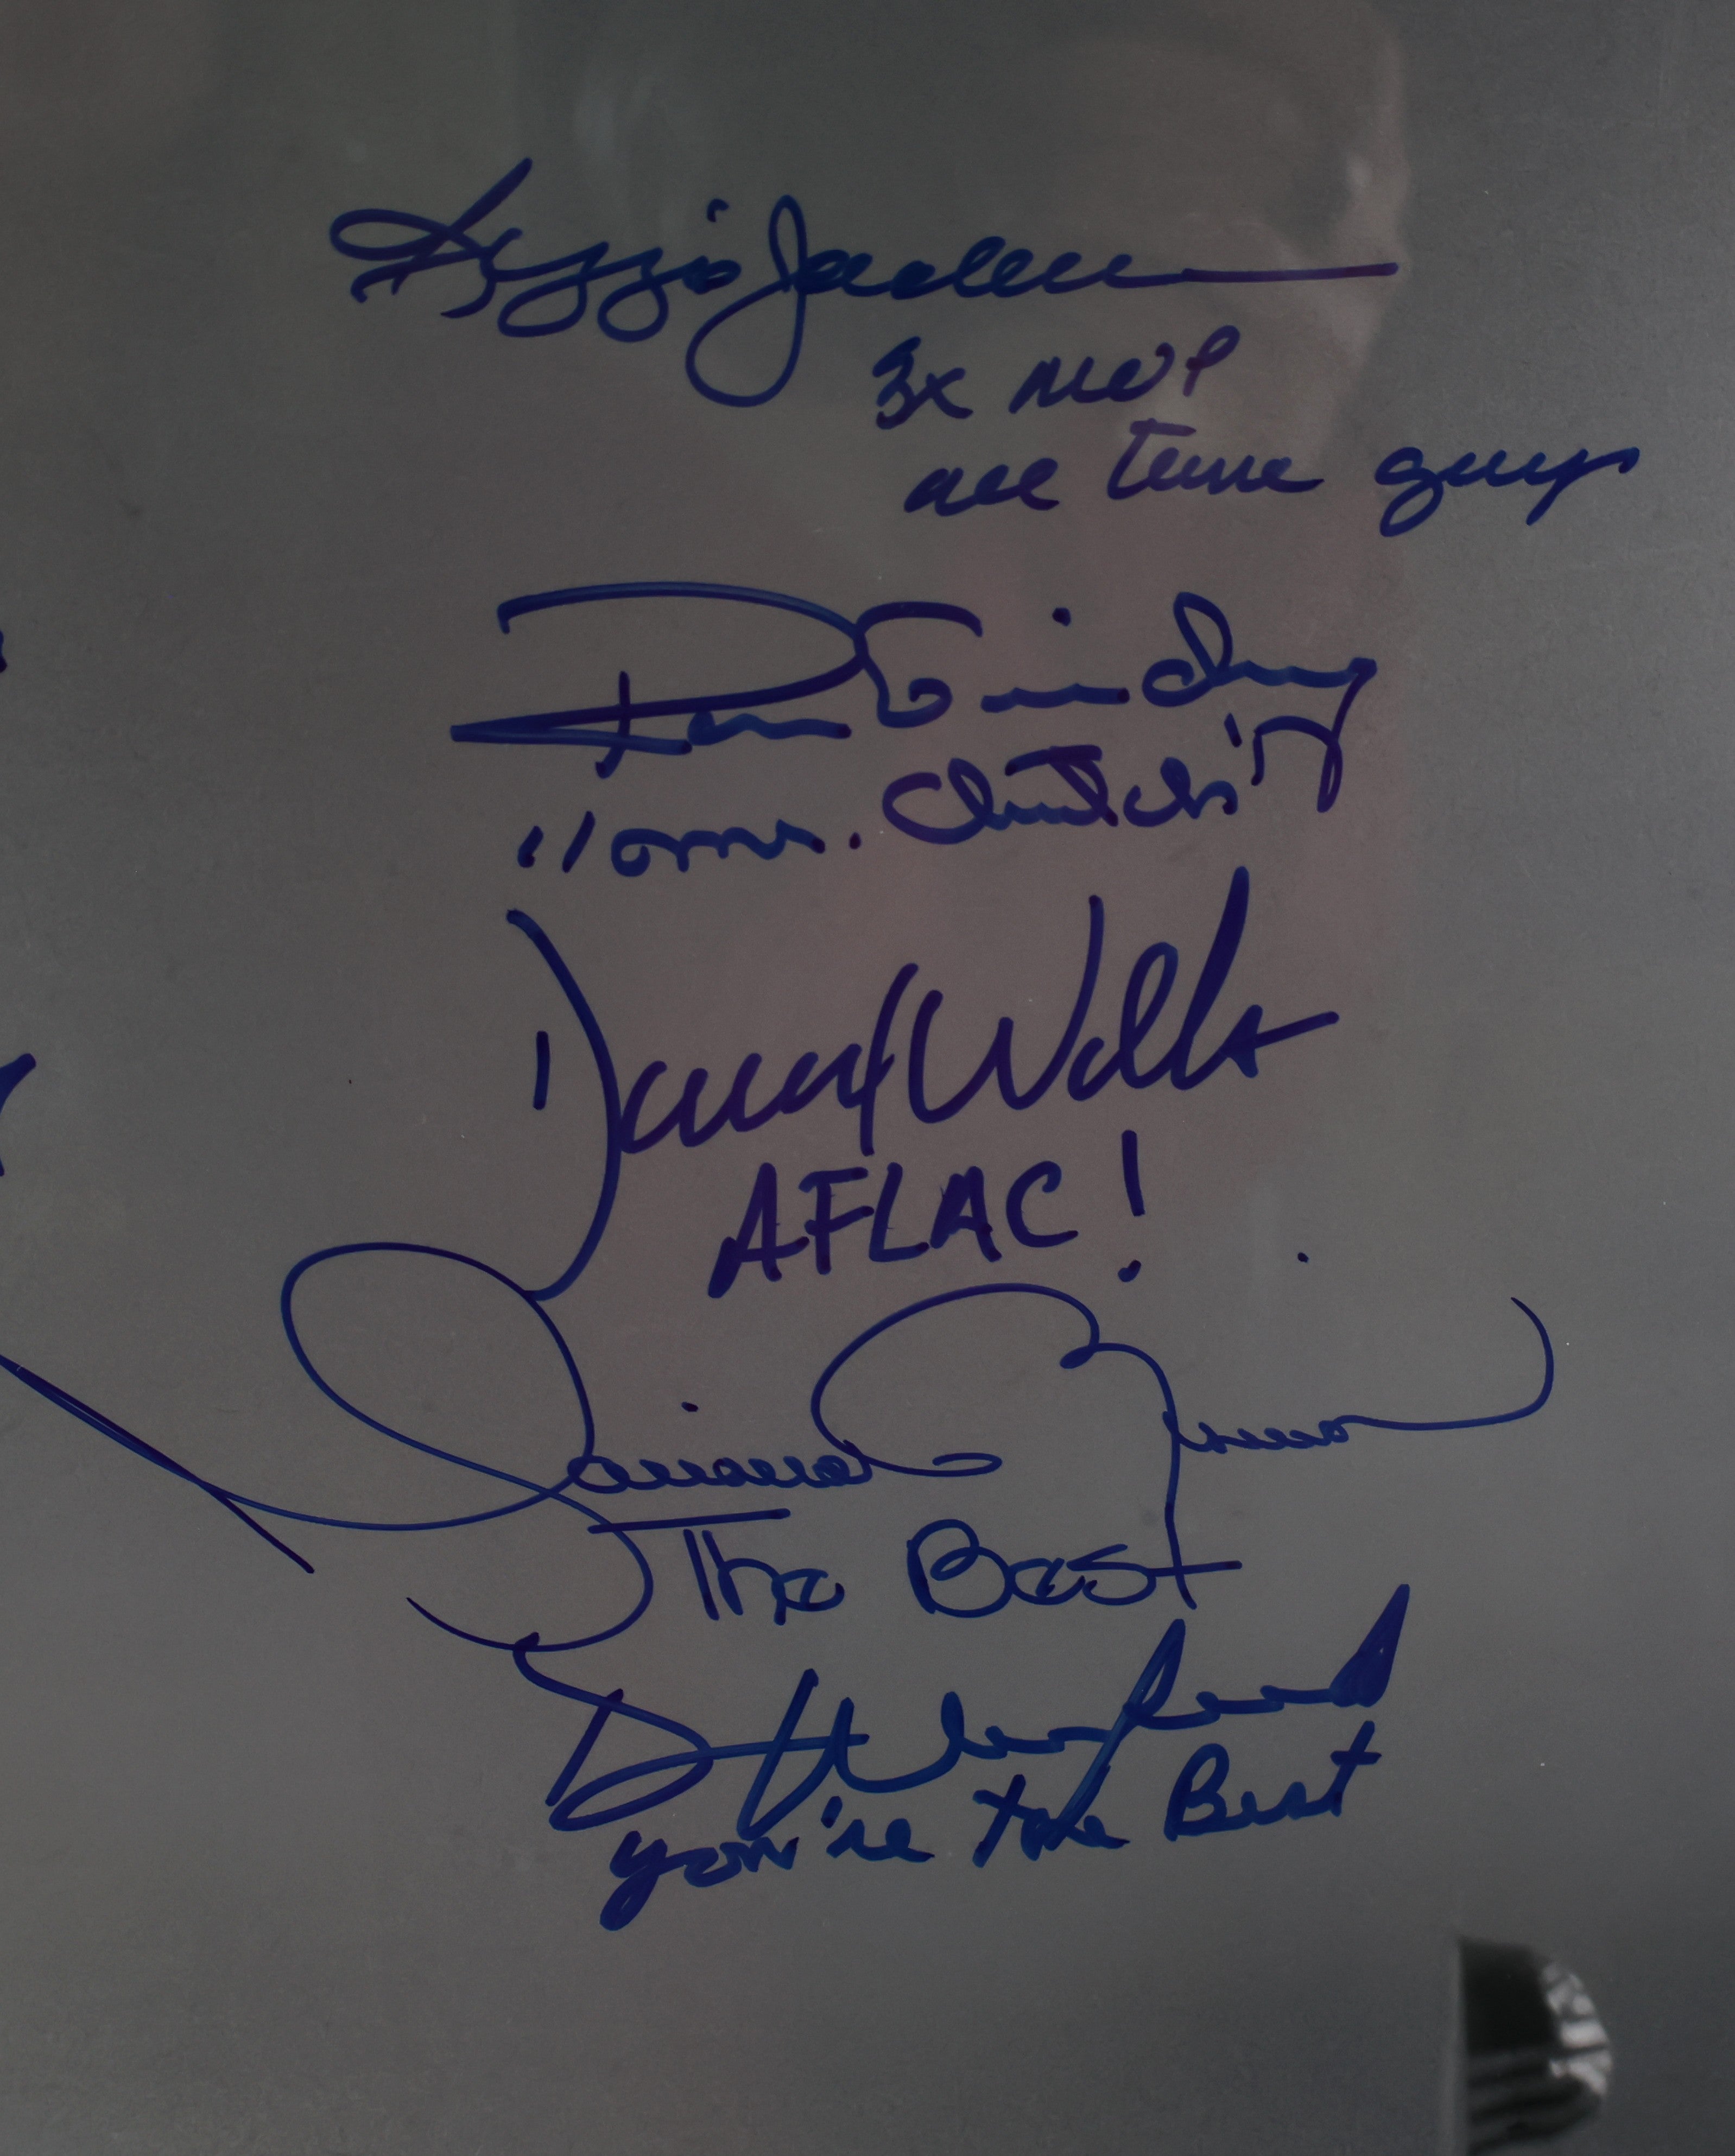 Reggie Jackson
3x MVP
all time guy
Ron Guidry
"Mr. Clutch"
David Wells
AFLAC!
Mariano Rivera
The Best
D
you're the Best